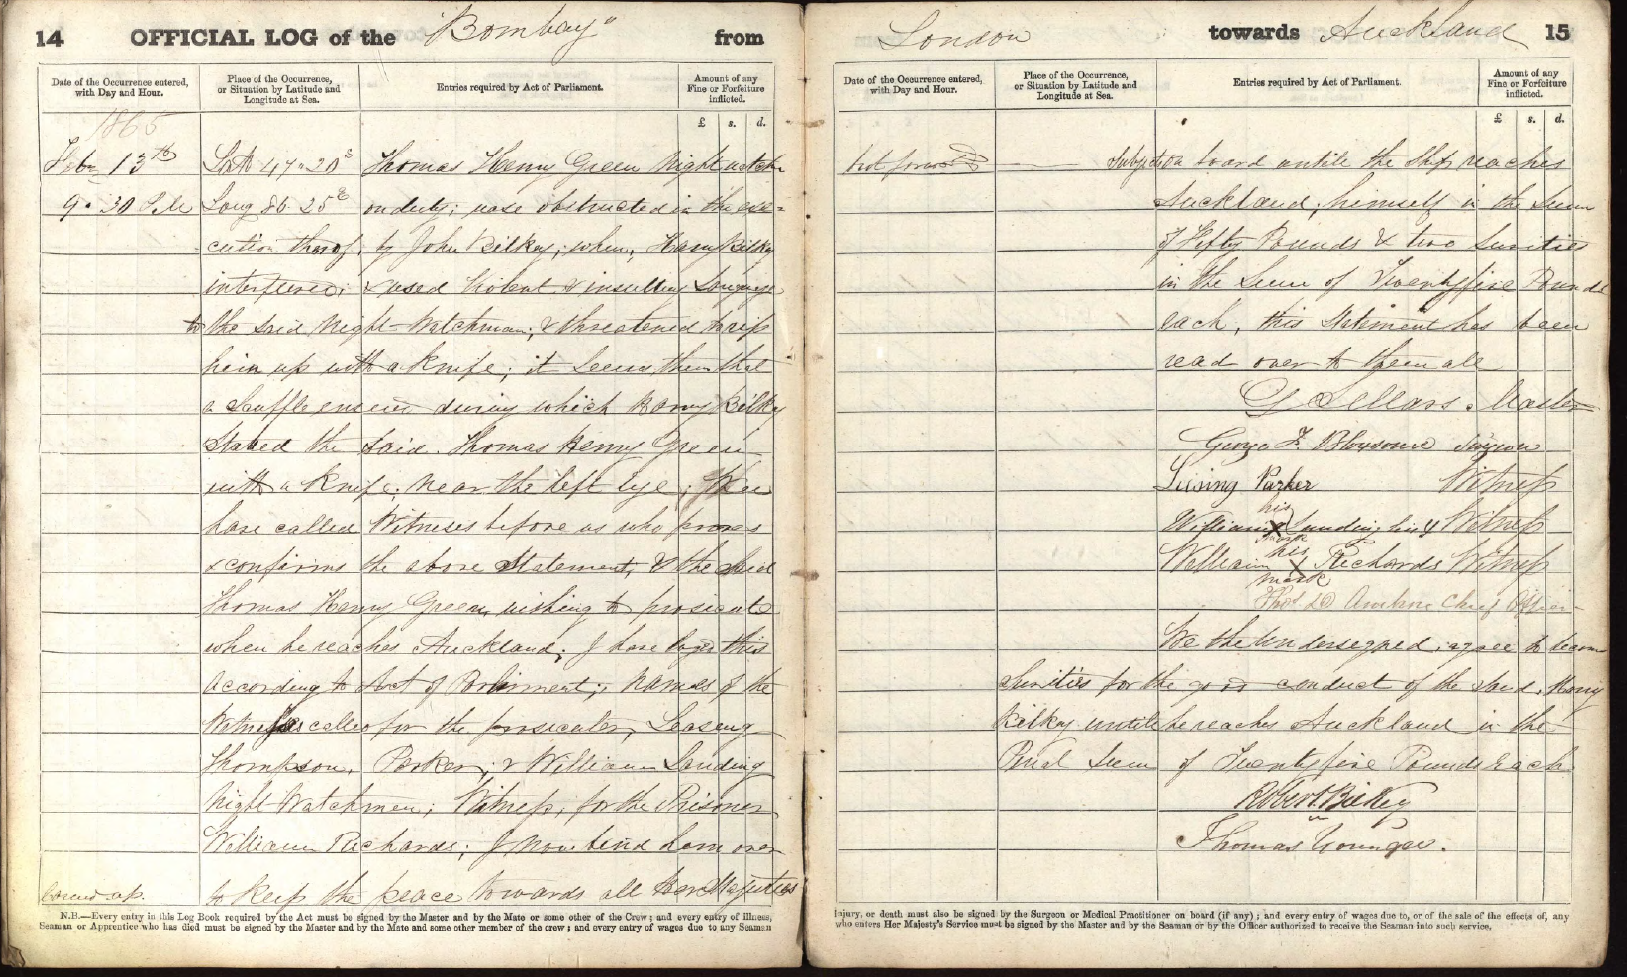 14 OFFICIAL LOG of the "Bombay" from
Date of the Occurrence entered, with Day and Hour.
Place of the Occurrence, or Situation by Latitude and Longitude at Sea.
Entries required by Act of Parliament.
Amount of any Fine or Forfeiture inflicted.
£ s. d.
1865
Feby 13th Latt 47" 20 s Thomas Henry Green Night watch
9. 30 P.M Long 86. 25 E on duty; wase obstructed in the exe=
cution therof; by John Bilkey; when; Harry Bilkey
interfered; & used Violent & insulting Language
to the said Night-Watchman; & threatened to rip
heim up with a knife; it seems then that
a Scuffle ensued during which Harry Bilkey
Stabed the said. Thomas Henry Green
with a knife; near the left eye; Wee
have called Witneses before us who proves
& confirms the above Statement, & the Said
Thomas Henry Green, wishing to prosicute
when he reaches Auckland; I have loged this
according to Act of Parliment; Names of the
Witnesses called for the prosicuter, Leaseng
Thompson, Parker; & William Sanding
Night-Watchmen; Witness, for the Prisoner
William Richards; I now bind hem over
to keep the peace towards all Her Majesties
N.B.—Every entry in this Log Book required by the Act must be signed by the Master and by the Mate or some other of the Crew; and every entry of illness,
Seaman or Apprentice who has died must be signed by the Master and by the Mate and some other member of the crew; and every entry of wages due to any Seaman
London towards Auckland 15
Date of the Occurrence entered, with Day and Hour.
Place of the Occurrence, or Situation by Latitude and Longitude at Sea.
Entries required by Act of Parliament.
Amount of any Fine or Forfeiture inflicted.
£ s. d.
Subjects on board untile the Ship reaches
Auckland; himself in the Seum
of Fifty Pounds & two Surities
in the Seum of Twentyfive Pounds
each, this Statiment has been
read over to them all
Sellars. Master
George Surgeon
Parker Witness
William X Witness
his
mark
William X Richards Witness
his
mark
Chief Officer
We the Undersegned; agree to become
Surities for the good conduct of the Said. Harry
Bilkey untile he reaches Auckland in the
Seum of Twentyfive Pounds Each
Robert Bilkey
Thomas Younger.
injury, or death must also be signed by the Surgeon or Medical Practitioner on board (if any); and every entry of wages due to, or of the sale of the effects of, any
who enters Her Majesty's Service must be signed by the Master and by the Seaman or by the Officer authorized to receive the Seaman into such service.